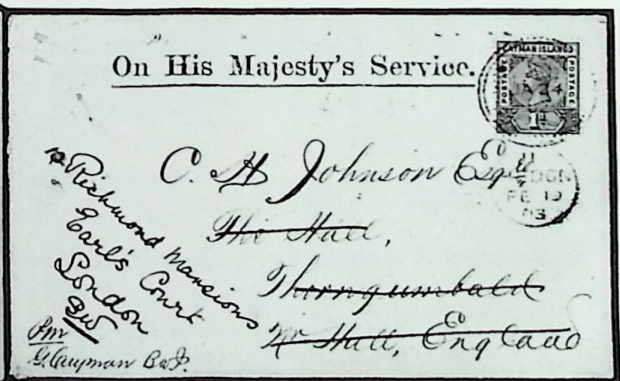 On His Majesty's Service.
CAYMAN ISLANDS
POSTAGE POSTAGE
1d
JA 24
C. H Johnson Esqre
The Hall,
Thorngumbald
Nr Hull, England
LONDON
FE 19
03
Richmond Mansions
Earl's Court
London
SW
Pm
G. Cayman B.W.I.